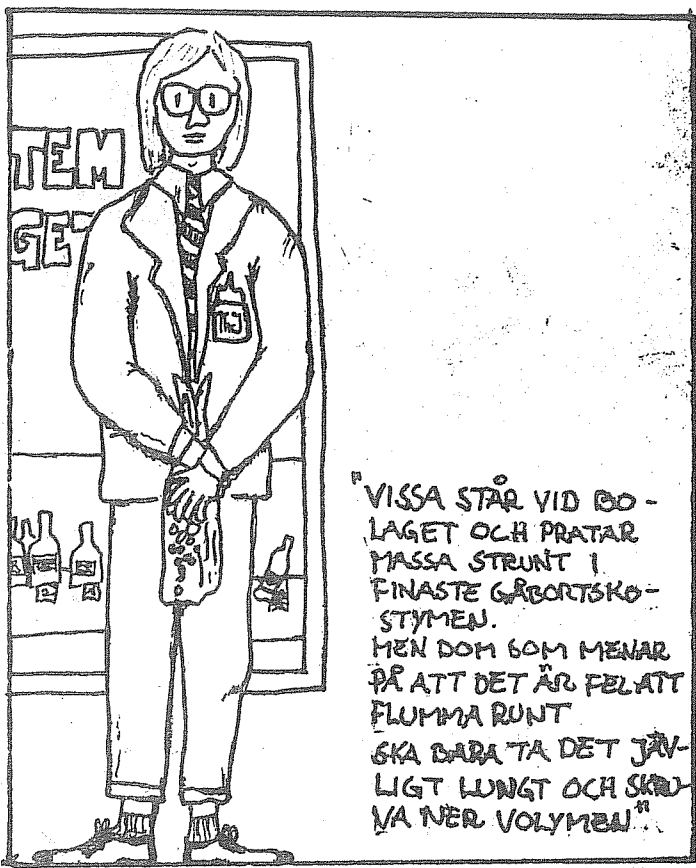 TEM
GET
"VISSA STÅR VID BO-
LAGET OCH PRATAR
MASSA STRUNT I
FINASTE GÅBORTSKO-
STYMEN.
MEN DOM SOM MENAR
PÅ ATT DET ÄR FEL ATT
FLUMMA RUNT
SKA BARA TA DET JÄV-
LIGT LUNGT OCH SKRU-
VA NER VOLYMEN"